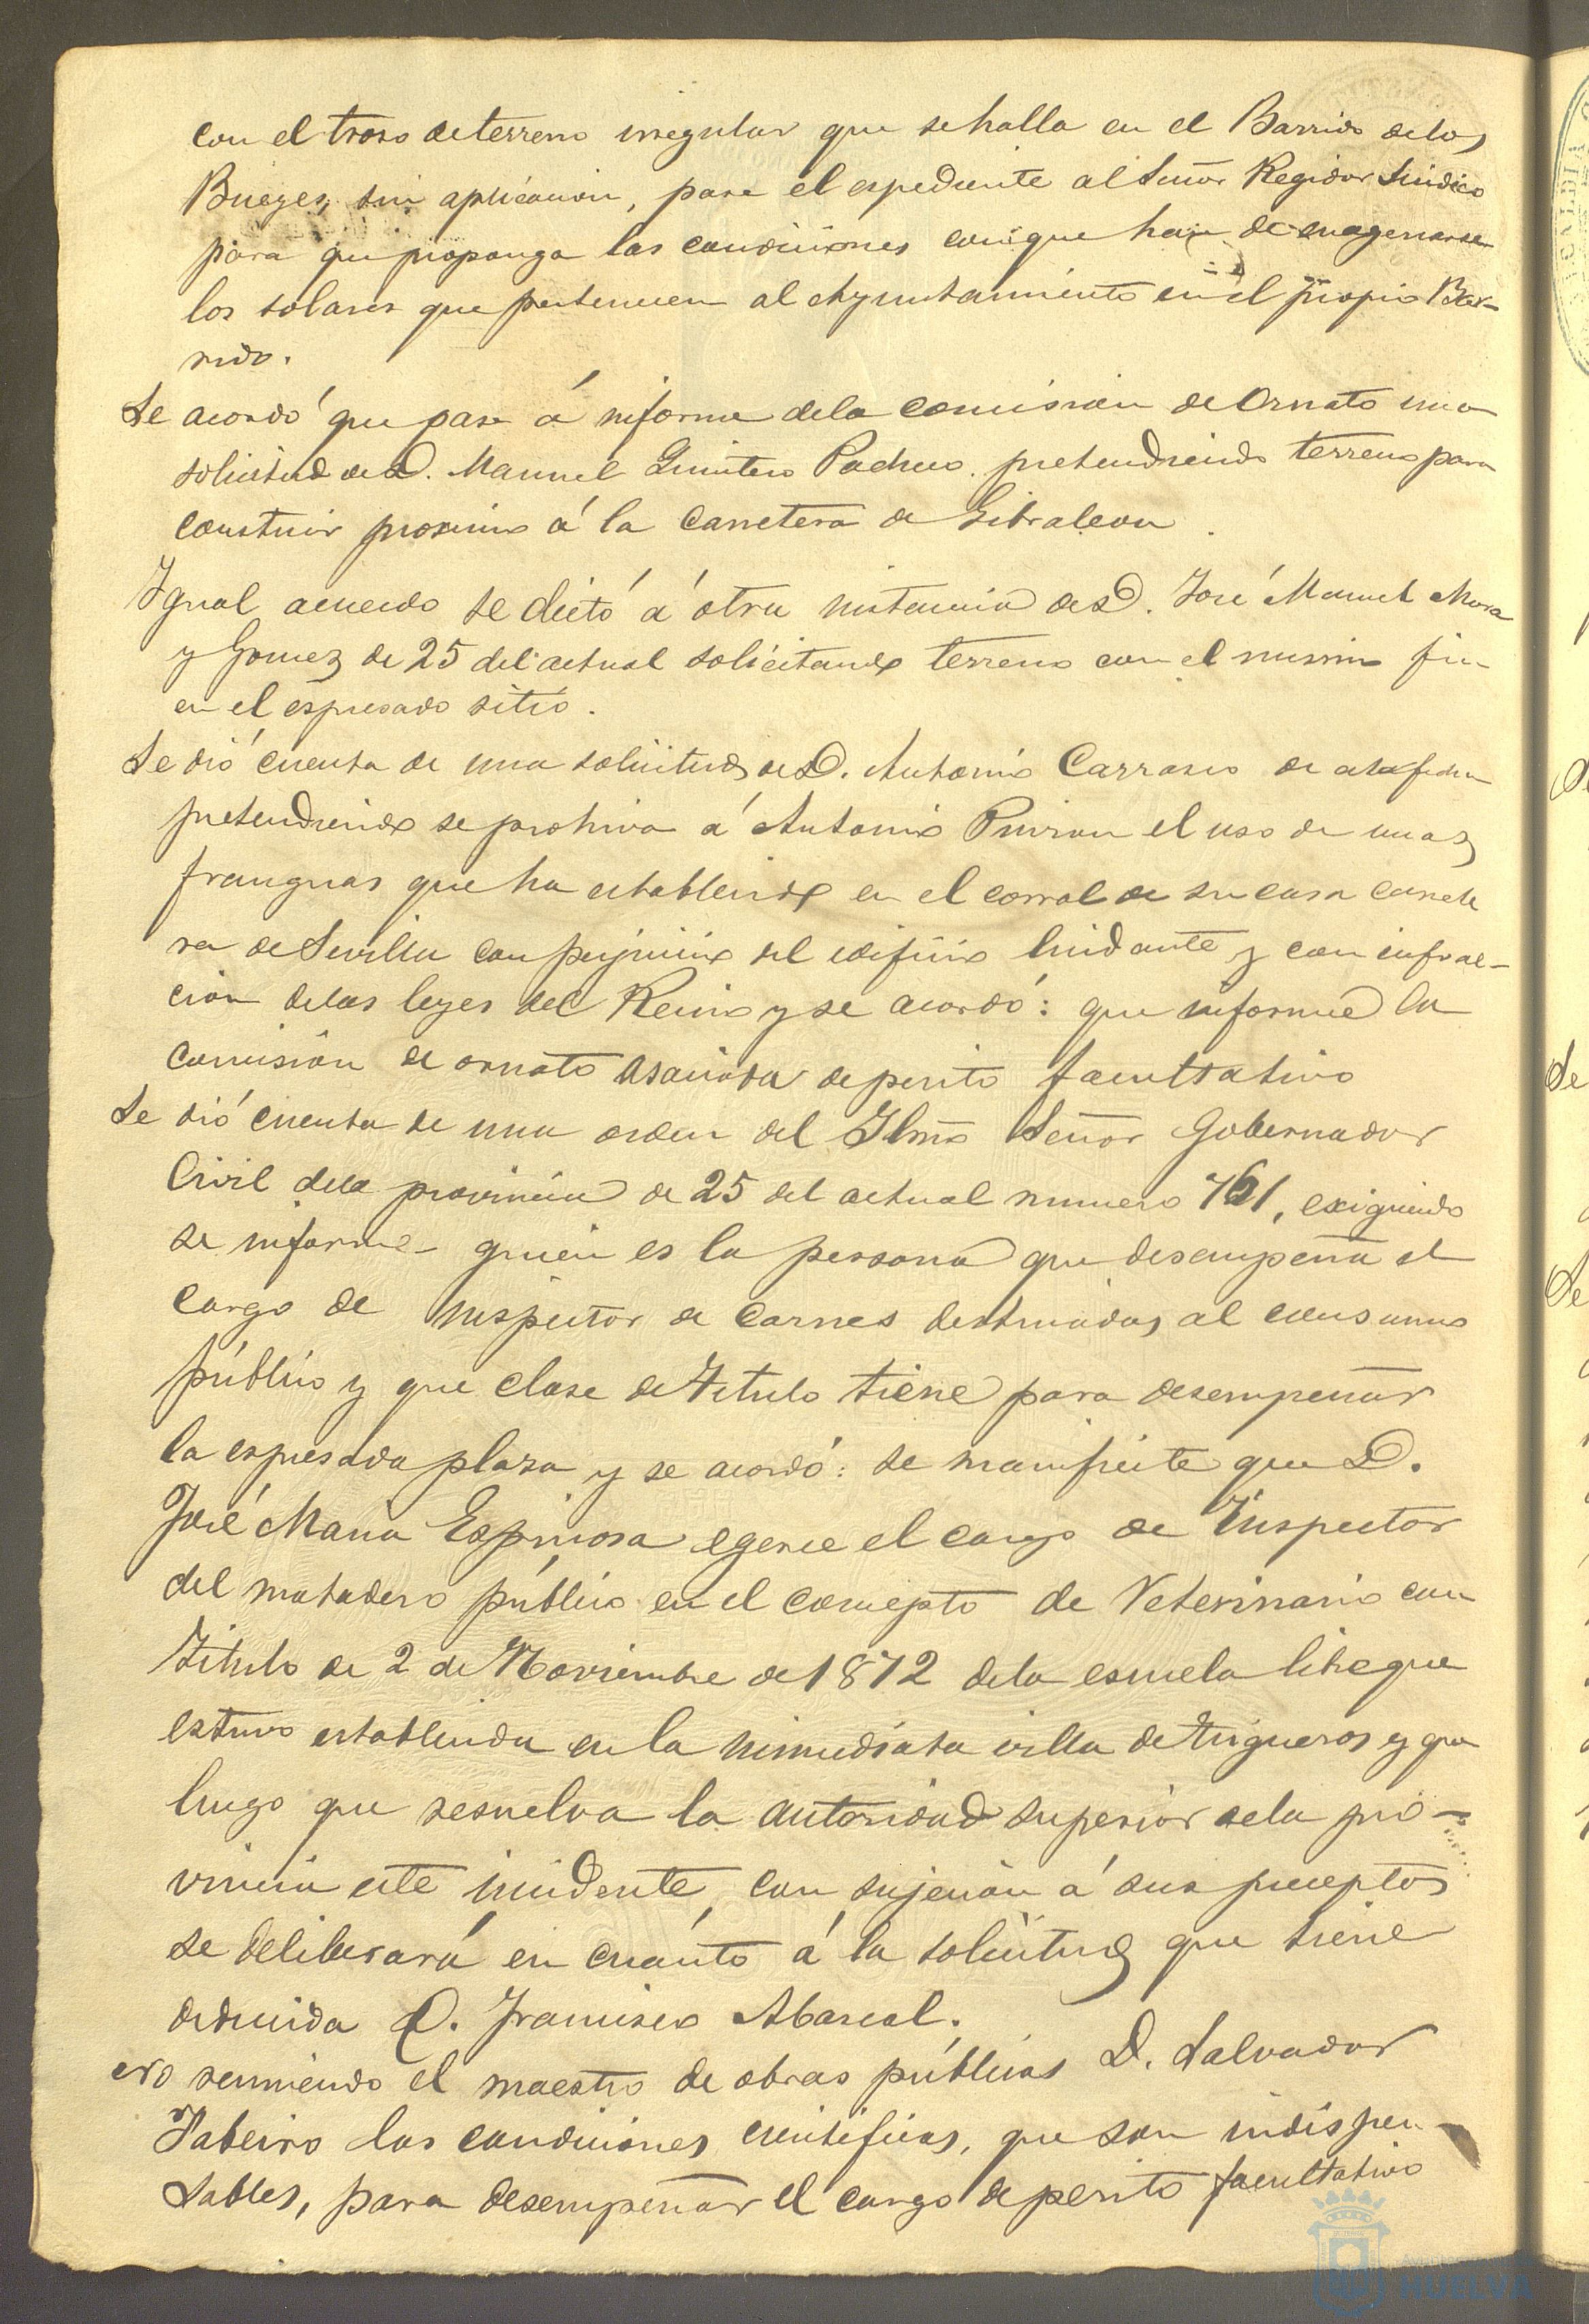 con el troso de terreno irregular que se halla en el Barrido de los
Bueyes, sin aplicacion, pase el espediente al Señor Regidor Sindico
para que proponga las condiciones con que han de enagenarse
los solares que pertenecen al Ayuntamiento en el propio Bar-
rido.
Se acordó que pase á informe de la comision de Ornato una
solicitud de D. Manuel Quintero Pacheco pretendiendo terreno para
construir proximo á la Carretera de Gibraleon.
Igual acuerdo se dictó á otra instancia de D. José Manuel Mora
y Gomez de 25 del actual solicitando terreno con el mismo fin
en el espresado sitio.
Se dió cuenta de una solicitud de D. Antonio Carrasco de
pretendiendo se prohiva á Antonio el uso de unas
franguas que ha establecido en el corral de su casa carrete
ra de Sevilla con perjuicio del edificio lindante y con infrac-
cion de las leyes del Reino y se acordó: que informe la
comision de ornato asociada de perito facultativo
Se dió cuenta de una orden del Ilmo Señor Gobernador
Civil de la provincia de 25 del actual numero 761, exigiendo
se informe quien es la persona que desempeña el
cargo de inspector de Carnes destinadas al consumo
público y que clase de Titulo tiene para desempeñar
la espresada plasa y se acordó: se manifieste que D.
José Maria Espinosa egerce el cargo de Inspector
del matadero público en el concepto de Veterinario con
Titulo de 2 de Noviembre de 1872 de la escuela libre que
estuvo establecida en la inmediata villa de Trigueros y que
luego que resuelva la autoridad superior de la pro-
vincia este incidente, con sujecion á sus preceptos
se deliberará en cuánto á la solicitud que tiene
deducida D. Francisco Abascal.
reuniendo el maestro de obras públicas D. Salvador
las condiciones cientificas, que son indispen-
sables, para desempeñar el cargo de perito facultativo
HUELVA